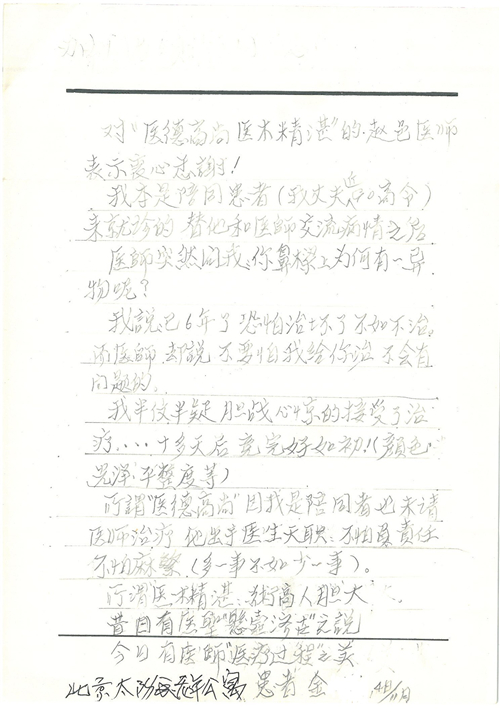 对“医德高尚医术精湛”的赵 医师
表示衷心志謝!
我本是陪同患者(我丈夫近90高令)
来就诊的 替他和医師交流病情之后
医師突然问我:你鼻樑上为何有一异
物呢?
我說已6年了 恐怕治坏了不如不治。
医師 却說 不要怕我给你治 不会有
问题的。
我半信半疑 胆战心惊的接受了治
疗....十多天后 竟完好如初!(顏色
光泽·平整度等)
所謂“医德高尚”因我是陪同者也未请
医师治疗 他出于医生天职:不怕負責任
不怕麻繁(多一事不如少一事)。
所谓“医术精湛”:術高人胆大
昔日有医聖“懸壶济世”之說
今日有医師“医疗过程”之美
北京太阳 老年公寓 患者 金